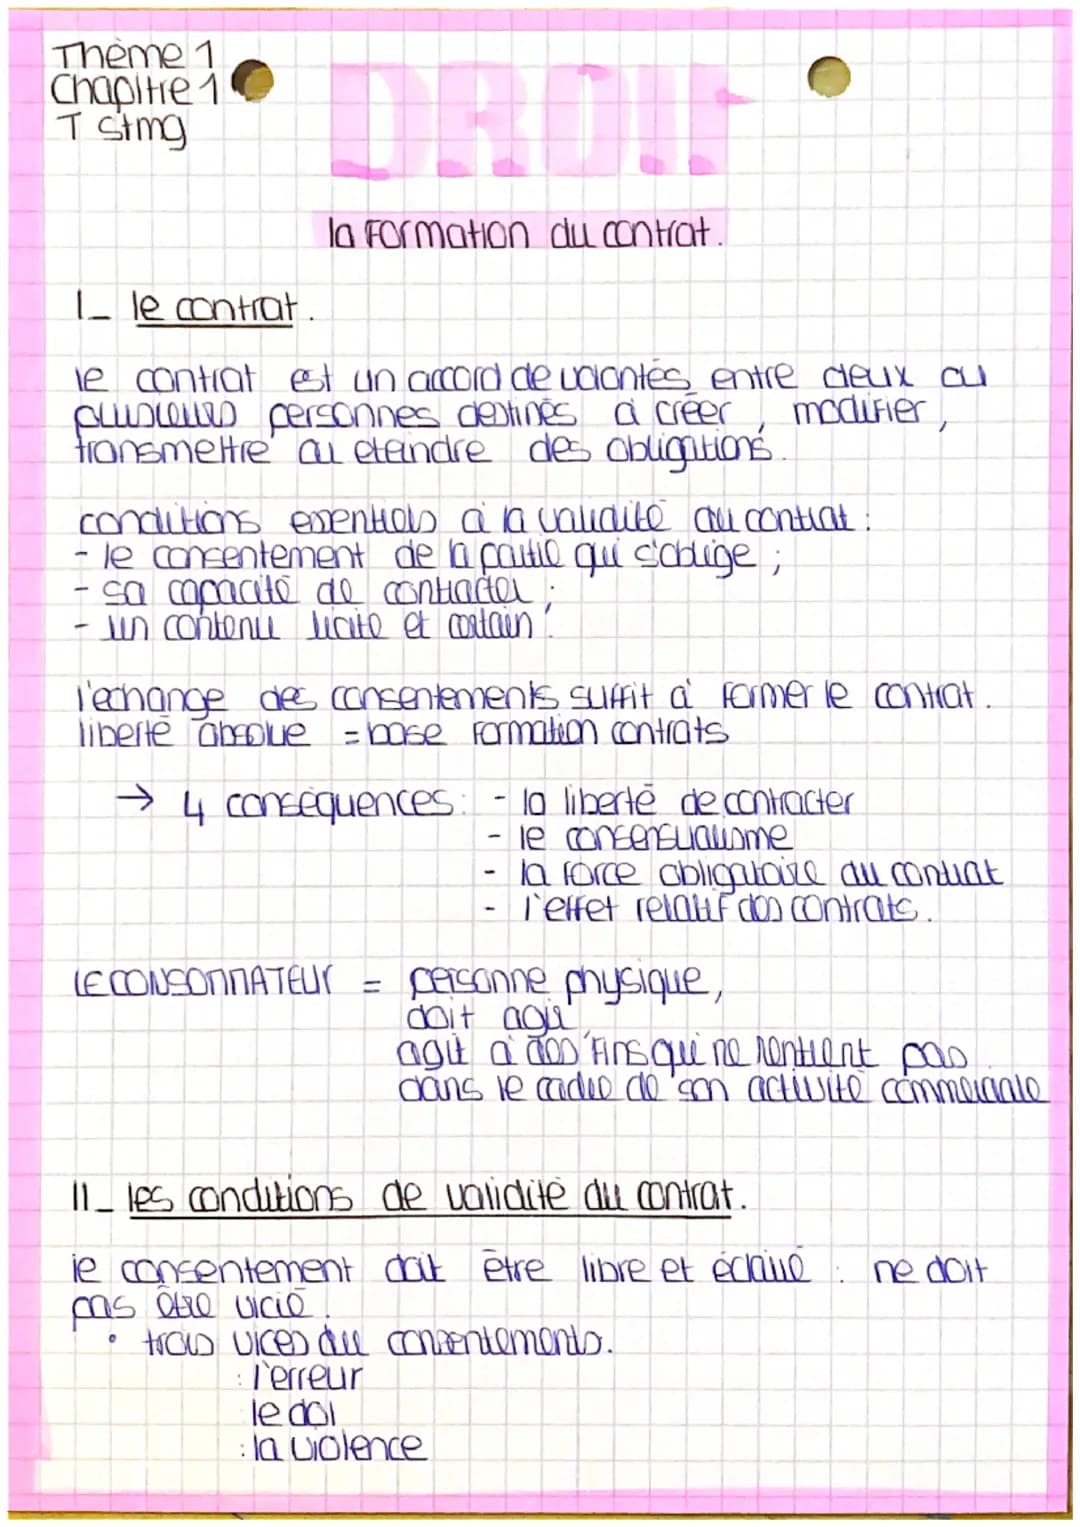 Thème 1
Chapitre 1
T stmg
DROIT
la formation du contrat.
I_ le contrat.
le contrat est un accord de volontés entre deux ou
plusieurs personnes destinés à créer, modifier,
transmettre ou eteindre des obligations.
conditions essentiels à la validité du contrat :
- le consentement de la partie qui s'oblige ;
- sa capacité de contracter ;
- un contenu licite et certain.
l'echange des consentements suffit à former le contrat.
liberté absolue = base formation contrats
→ 4 conséquences : - la liberté de contracter
- le consensualisme
- la force obligatoire du contrat
- l'effet relatif des contrats.
LE CONSOMMATEUR = personne physique,
doit agir
agit à des fins qui ne rentrent pas
dans le cadre de son activité commerciale
II_ les conditions de validité du contrat.
le consentement doit être libre et éclairé : ne doit
pas être vicié.
• trois vices du consentements.
: l'erreur
le dol
: la violence